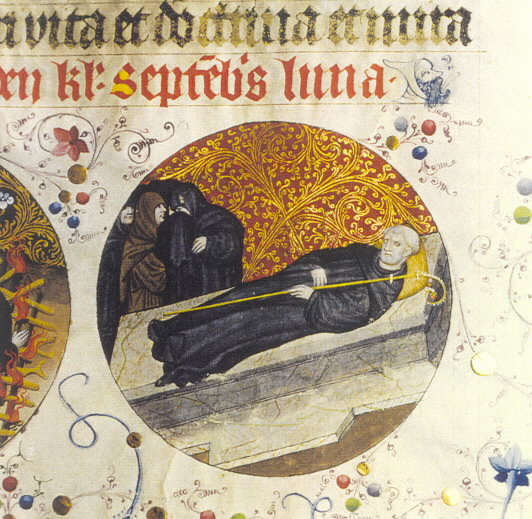 vita et doctrina et mira
kl. septēb's luna.